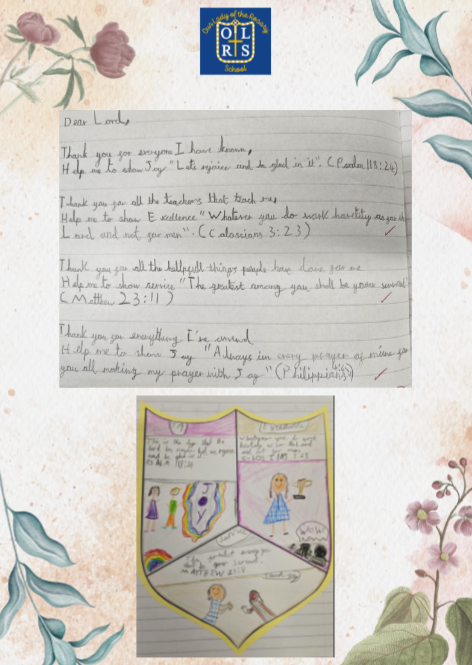 Our Lady of the Rosary
O L
R S
School
Dear Lord,
Thank you for everyone I have known,
Help me to show Joy "Lets rejoice and be glad in it". (Psalm 118:24)
Thank you for all the teachers that teach me,
Help me to show Excellence "Whatever you do work heartily as for
Lord and not for men". (Colossians 3:23)
Thank you for all the helpfull things people have done for me
Help me to show service "The greatest among you shall be your servant"
(Matthew 23:11)
Thank you for everything I've
Help me to show Joy "Always in every prayer of mine for
you all making my prayer with Joy" (Philippians)
Joy
the day that the
Excellence
JOY
WOW
Service
The greatest among you
shall be your servant.
23:11
Thank you